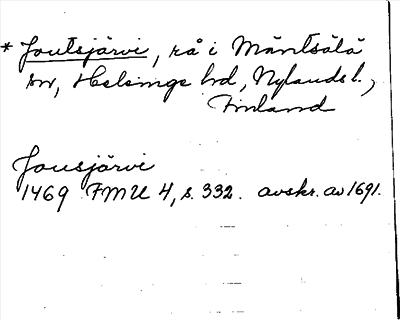 * Joutsjärvi, rå i Mäntsälä
sn, Helsinge hd, Nylands l.,
Finland
Jousjärvi
1469 FMU 4, s. 332. avskr. av 1691.